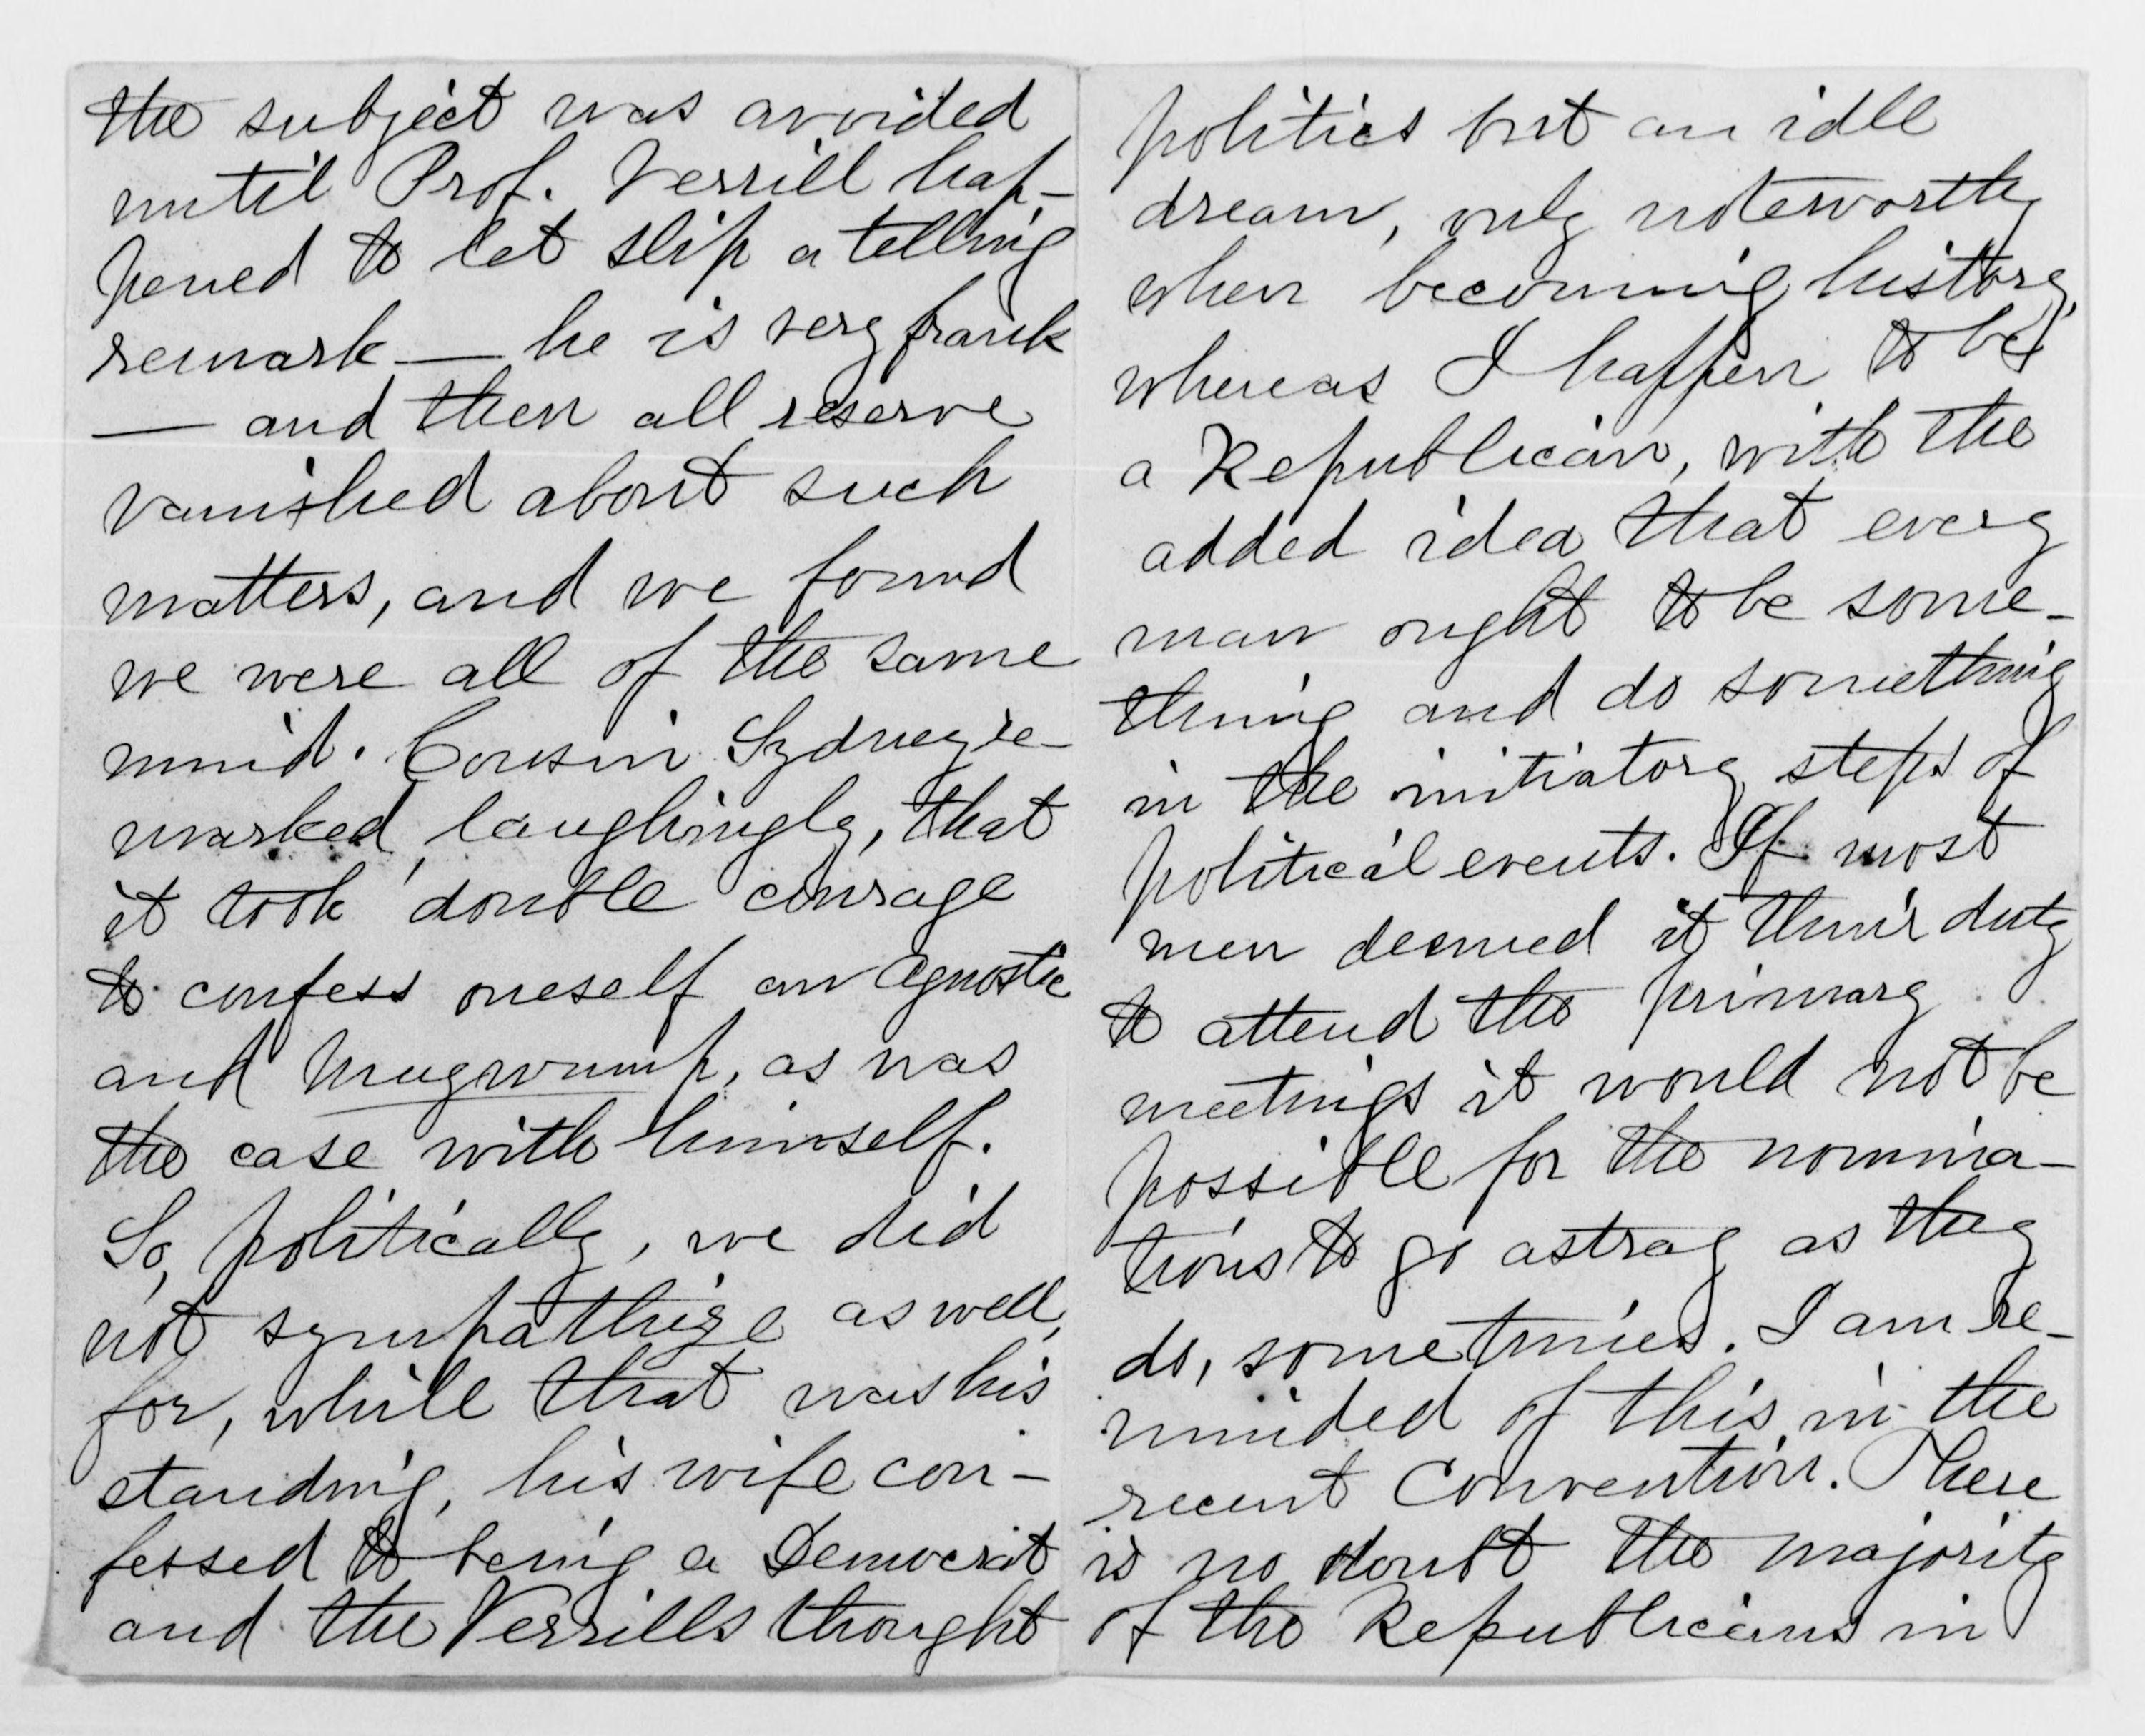 the subject was avoided
until Prof. Verrill hap-
pened to let slip a telling
remark — he is very frank
— and then all reserve
vanished about such
matters, and we found
we were all of the same
mind. Cousin Sydney re-
marked, laughingly, that
it took double courage
to confess oneself an agnostic
and mugwump, as was
the case with himself.
So, politically, we did
not sympathize as well,
for, while that was his
standing, his wife con-
fessed to being a Democrat
and the Verrills thought
politics but an idle
dream, only noteworthy
when becoming history,
whereas I happen to be
a Republican, with the
added idea that every
man ought to be some-
thing and do something
in the initiatory steps of
political events. If most
men deemed it their duty
to attend the primary
meetings it would not be
possible for the nomina-
tions to go astray as they
do, sometimes. I am re-
minded of this in the
recent Convention. There
is no doubt the majority
of the Republicans in